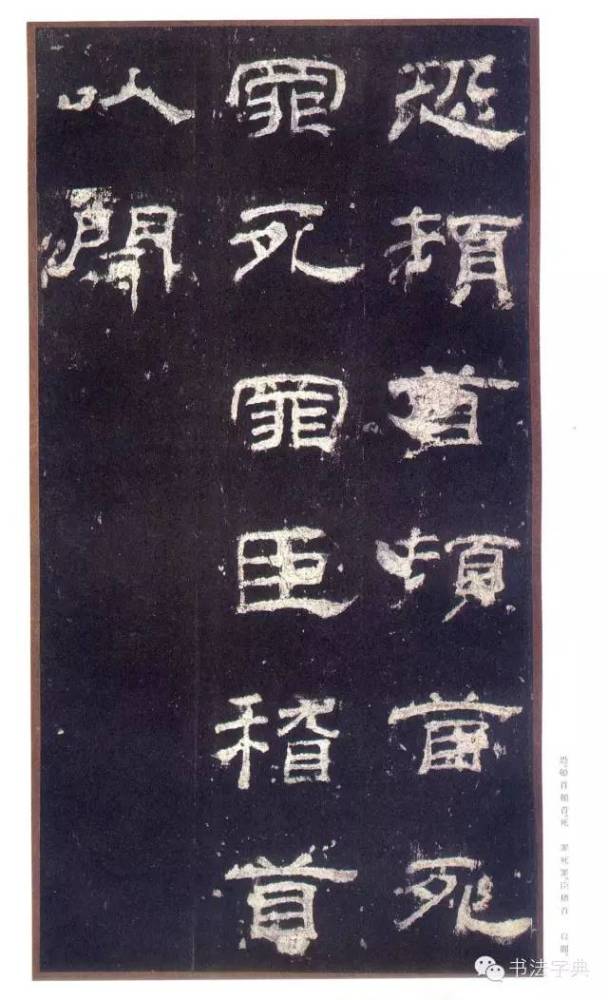 恐頓首頓首死
罪死罪臣稽首
以聞
恐頓首頓首死 罪死罪臣稽首 以聞
书法字典